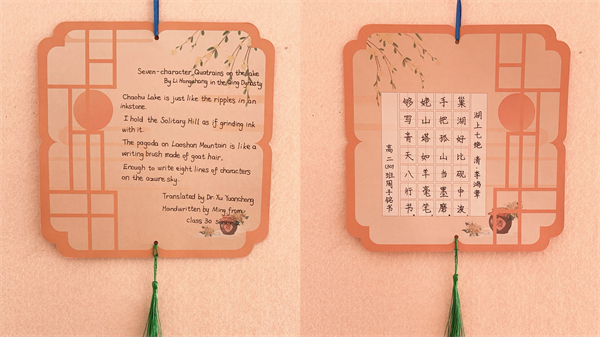 Seven-character Quatrains on the Lake
By Li Hongzhang in the Qing Dynasty
Chaohu Lake is just like the ripples in an
inkstone.
I hold the Solitary Hill as if grinding ink
with it.
The pagoda on Laoshan Mountain is like a
writing brush made of goat hair,
Enough to write eight lines of characters
on the azure sky.
Translated by Dr Xu Yuanchong
Handwritten by Ming from
class 30
湖上七绝 清 李鸿章
巢湖好比砚中波
手把孤山当墨磨
姥山塔如羊毫笔
够写青天八行书
高二(30)班周子铭书